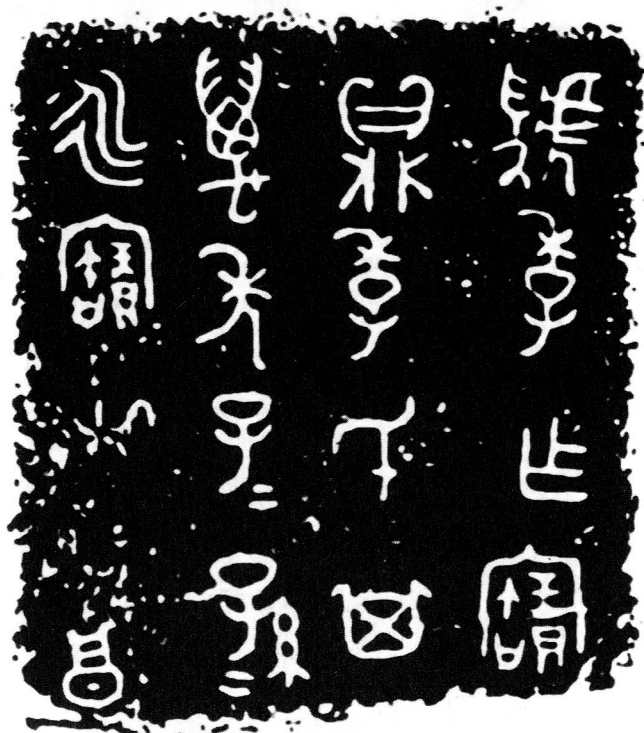 虢季乍寶
鼎季氏其
萬年子=孫=
永寶用享